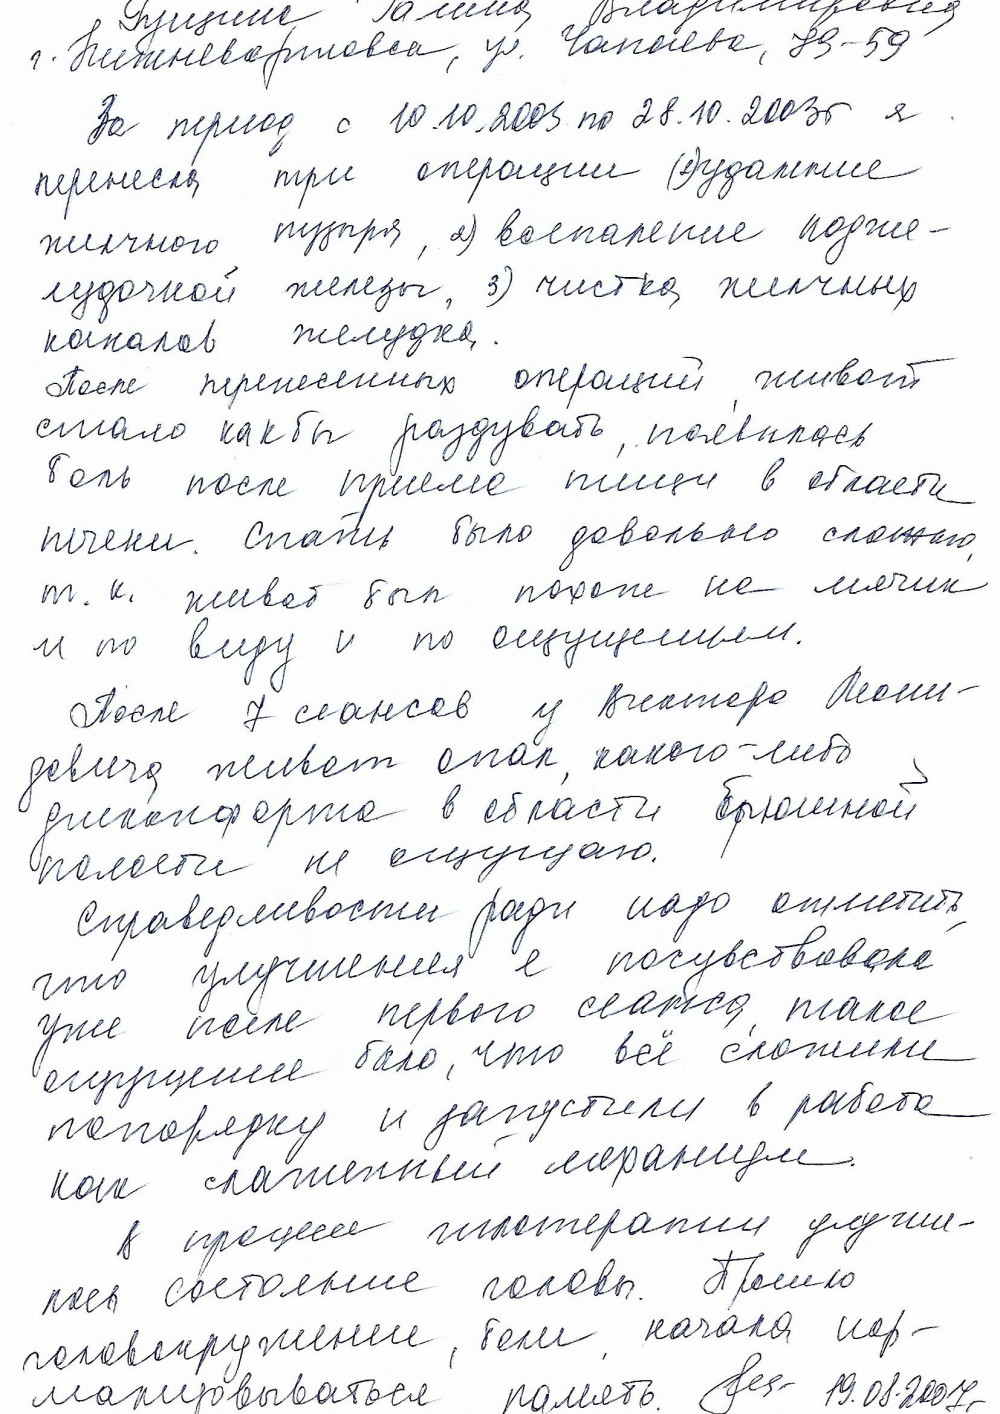 Галина Владимировна
г. Нижневартовск, ул. Чапаева, 79-59
За период с 10.10.2003 по 28.10.2003г я
перенесла три операции (1) удаление
желчного пузыря, 2) воспаление подже-
лудочной железы, 3) чистка желчных
каналов желудка.
После перенесенных операций, живот
стало как бы раздувать, появилась
боль после приема пищи в области
печени. Спать было довольно сложно,
т.к. живот был похож на мячик
и по виду и по ощущениям.
После 7 сеансов у Виктора Леони-
довича живот опал, какого-либо
дискомфорта в области брюшной
полости не ощущаю.
Справедливости ради надо отметить,
что улучшения я почувствовала
уже после первого сеанса, такое
ощущение было, что всё сложили
попорядку и запустили в работу
как слаженный механизм.
В процессе гипотерапии улучши-
лось состояние головы. Прошло
головокружение, боли, начала нор-
мализовываться память. 19.08.2007г